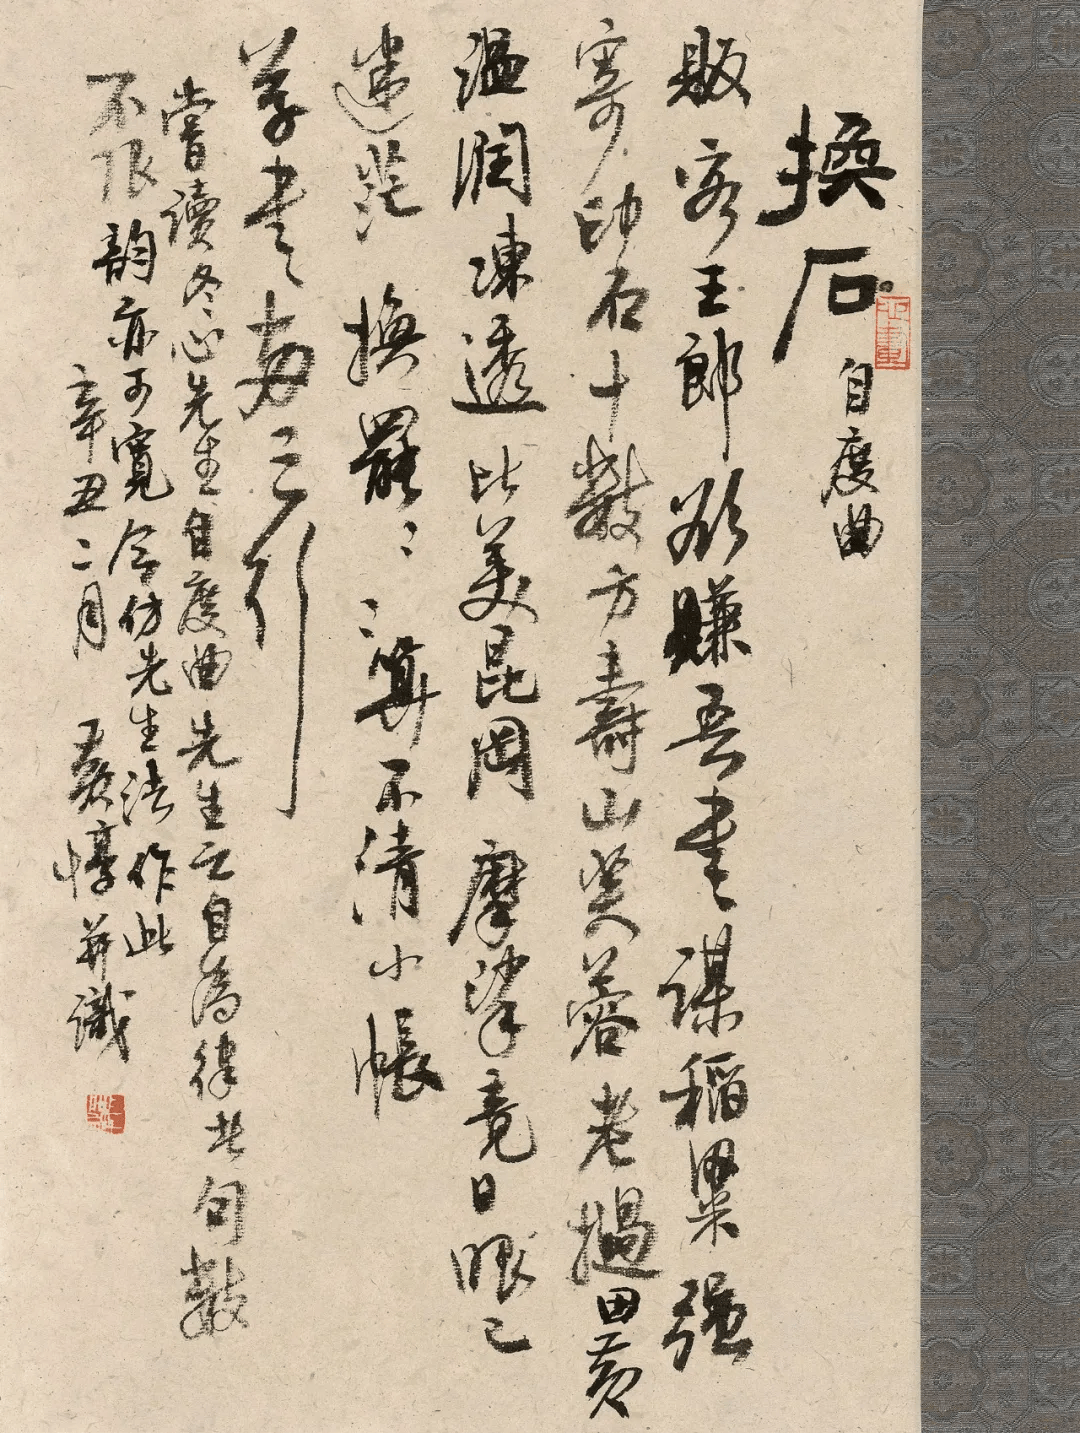 換石 自度曲
販客王郎欲賺吾書謀稻粱強
寄印石十數方壽山芙蓉老撾田黃
溫潤凍透比美昆岡摩挲竟日眼已
迷茫換罷〻〻算不清小帳
草書古三引
嘗讀冬心先生自度曲先生云自為律者句數
不限韻亦可寬今仿先生法作此
辛丑二月 黃惇并識